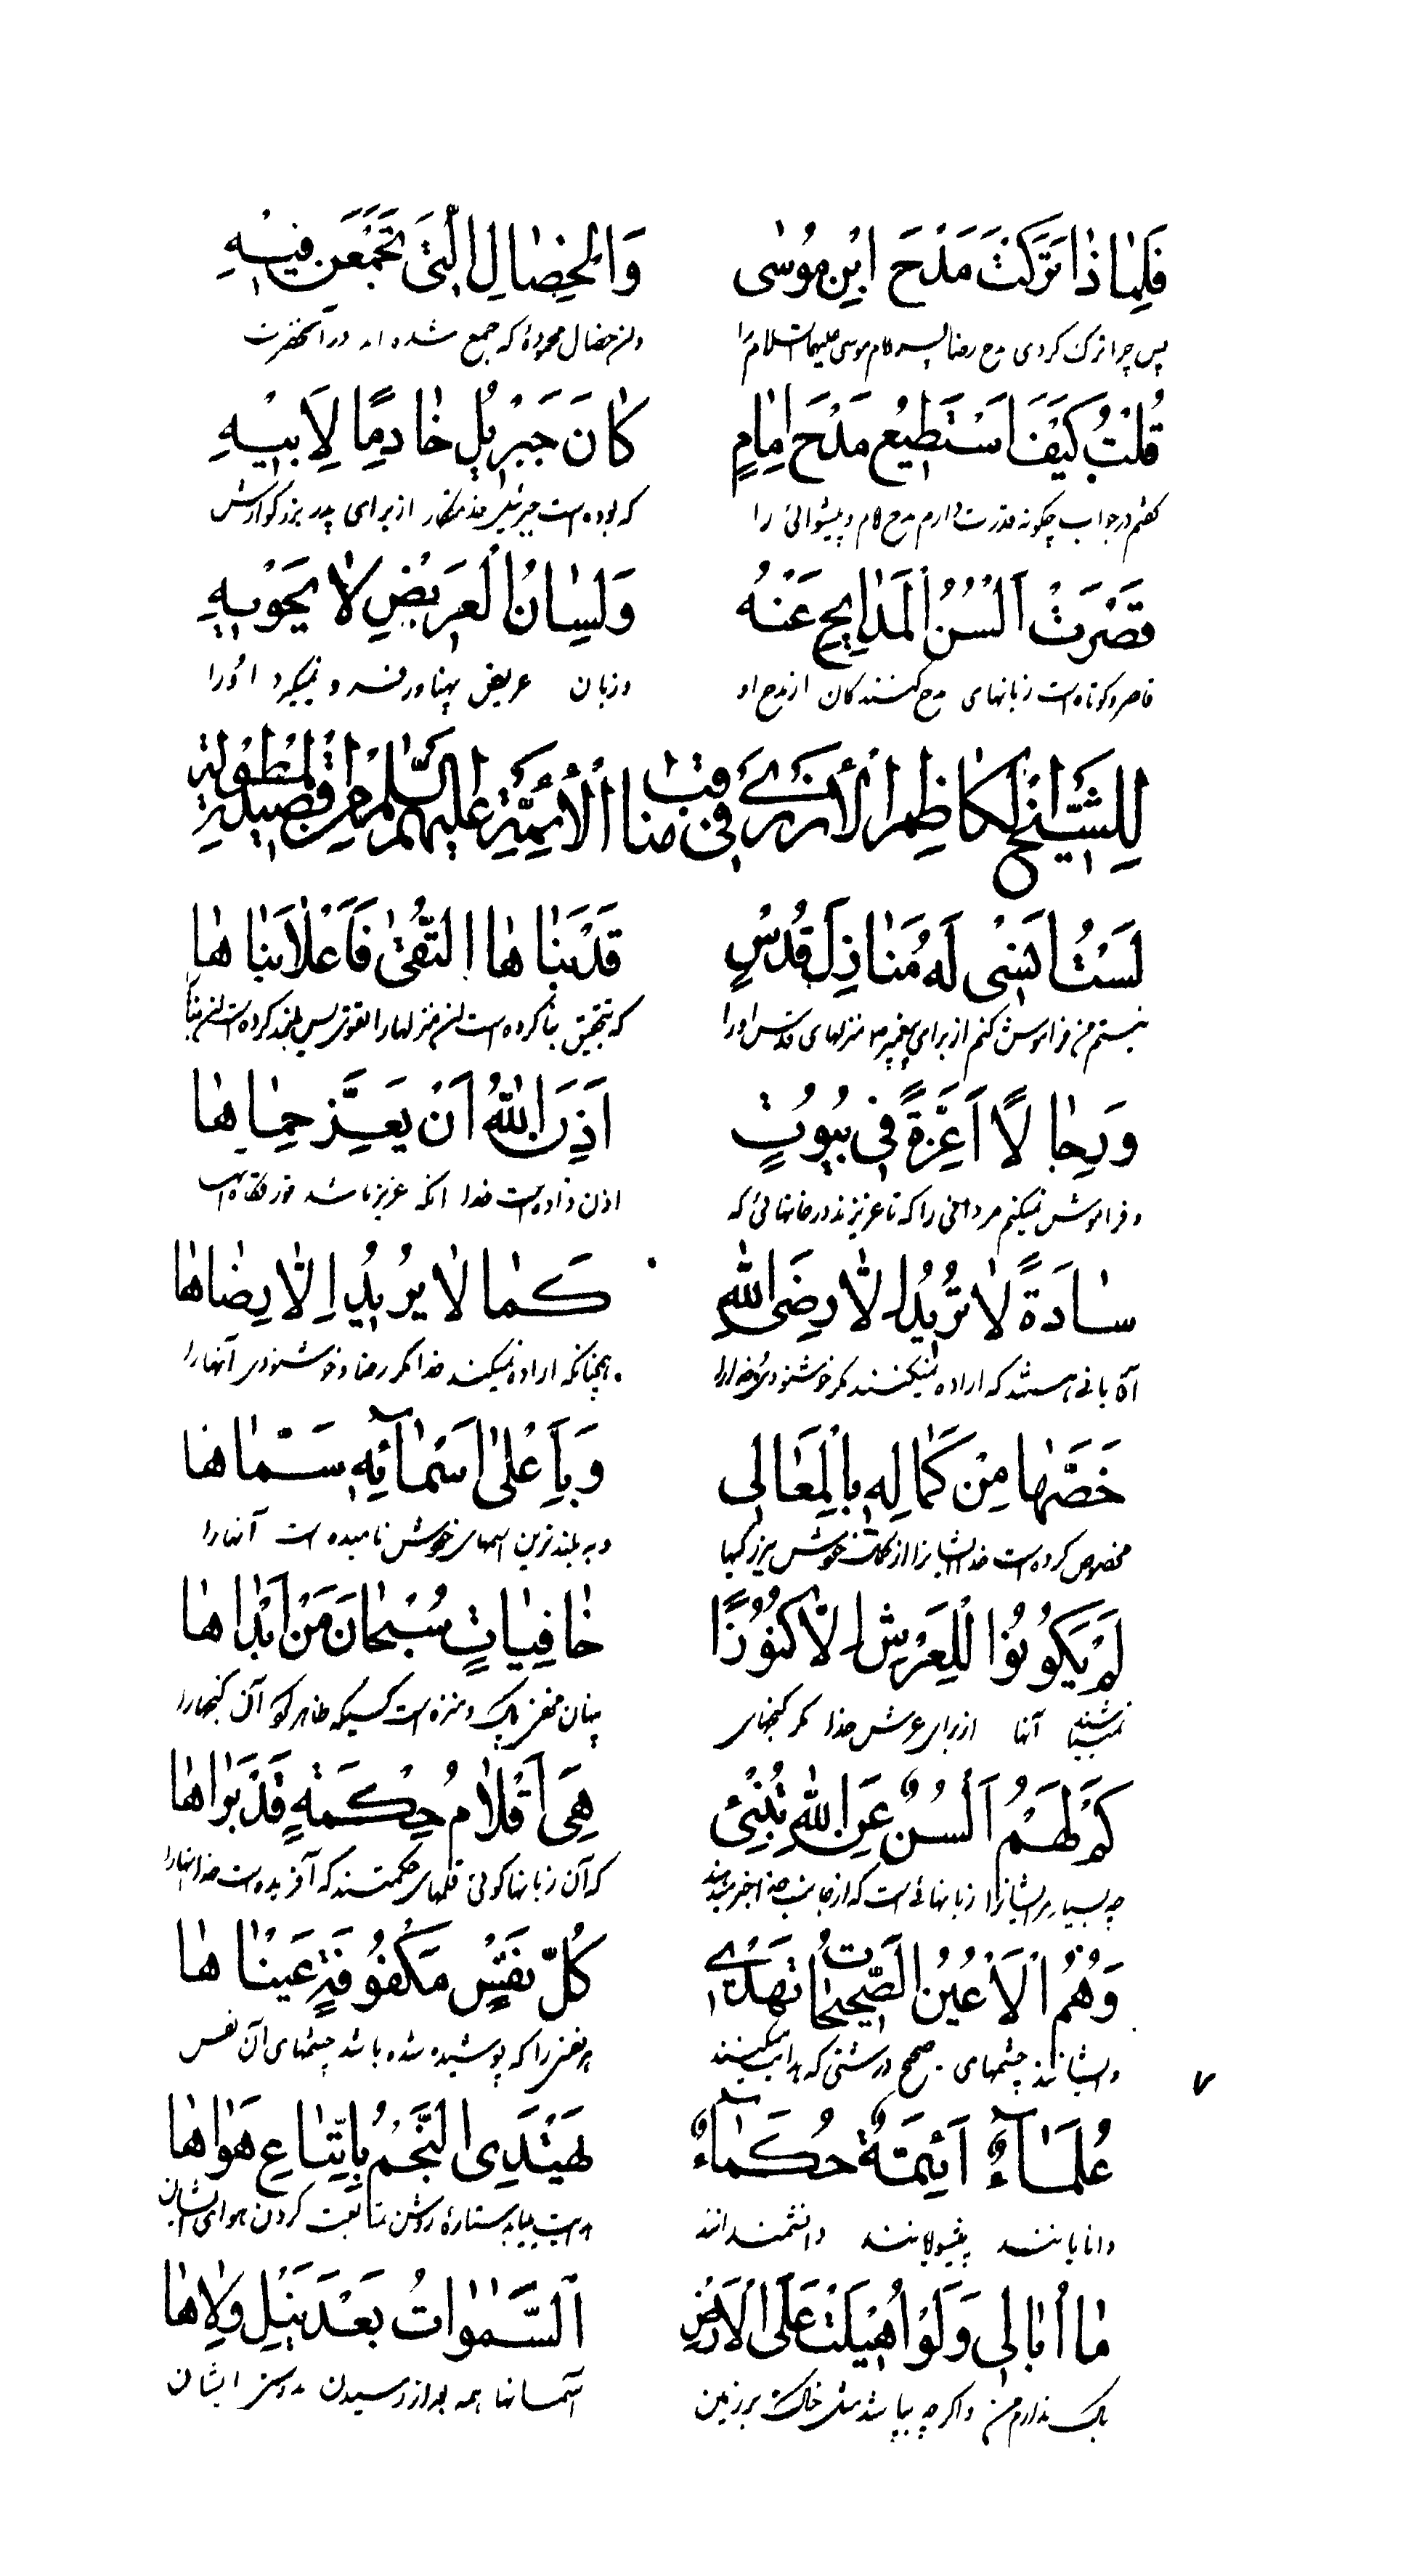 فَلِمٰاذٰا تَرَكْتَ مَدْحَ ابْنِ مُوسٰى وَالْخِصٰالِ الَّتِی تَجَمَّعْنَ فیٖهِ
پس چرا ترک کردی مدح رضا پسر امام موسی علیهما السلام را واین خصال محمودهٔ که جمع شده اند در آنحضرت
قُلْتُ كَیْفَ اَسْتَطیٖعُ مَدْحَ اِمٰامٍ كٰانَ جَبْرَئیٖلُ خٰادِمًا لِاَبیٖهِ
گفتم در جواب چگونه قدرت دارم مدح امام و پیشوائی را که بوده است جبرئیل خدمتکار از برای پدر بزرگوارش
قَصُرَتْ اَلْسُنُ الْمَدٰایِحِ عَنْهُ وَلِسٰانُ الْعَریٖضِ لٰا یَحْویٖهِ
قاصر و کوتاه است زبانهای مدح کنندکان از مدح او و زبان عریض پهناور فرو نمیگیرد او را
لِلشَّیْخِ الْكٰاظِمِ الْاُزْرِیِّ فیٖ مَنٰاقِبِ الْاَئِمَّةِ عَلَیْهِمُ السَّلٰامُ مِنْ قَصیٖدَتِهِ الْمُطَوَّلَةِ
لَسْتُ اَنْسٰى لَهُ مَنٰازِلَ قُدْسٍ قَدْ بَنٰاهَا التُّقىٰ فَاَعْلٰا بَنٰاهٰا
نیستم من فراموش کنم از برای پیغمبر منزلهای قدس او را که بتحقیق بنا کرده است آن منزلها را تقوی پس بلند کرده است آن بنا
وَرِجٰالًا اَعِزَّةً فیٖ بُیُوتٍ اَذِنَ اللّٰهُ اَنْ یَعِزَّ حِمٰاهٰا
و فراموش نمیکنم مردانی را که با عزیزند در خانهائی که اذن داده است خدا آنکه عزیز باشد
سٰادَةً لٰا تُریٖدُ اِلّٰا رِضَی اللّٰهِ كَمٰا لٰا یُریٖدُ اِلّٰا رِضٰاهٰا
آقایانی هستند که اراده نمیکنند مکر خوشنودی خدا را همچنانکه اراده نمیکند خدا مکر رضا و خوشنودی آنها را
خَصَّهٰا مِنْ كَمٰالِهِ بِالْمَعٰالیٖ وَبِاَعْلىٰ اَسْمٰآئِهِ سَمّٰاهٰا
مخصوص کرده است خدا ایشانرا از کمالات خویش ببزرگیها و به بلندترین اسمهای خویش نامیده است آنها را
لَمْ یَكُونُوا لِلْعَرْشِ اِلّٰا كُنُوزًا خٰافِیٰاتٍ سُبْحٰانَ مَنْ اَبْدٰاهٰا
نمیباشند آنها از برای عرش خدا مکر گنجهای پنهان مخفی پاک و منزه است کسیکه ظاهر کرد آن گنجها را
كَمْ لَهُمْ اَلْسُنٌ عَنِ اللّٰهِ تُنْبِئُ هِیَ اَقْلٰامُ حِكْمَةٍ قَدْ بَرٰاهٰا
چه بسیار بر ایشانرا زبانهائی است که از جانب خدا خبر میدهند که آن زبانها گوئی قلمهای حکمتند که آفریده است خدا آنها را
وَهُمُ الْاَعْیُنُ الصَّحیٖحٰاتُ تَهْدیٖ كُلَّ نَفْسٍ مَكْفُوفَةٍ عَیْنٰاهٰا
و ایشانند چشمهای صحیح و درستی که هدایت میکنند هر نفس را که پوشیده شده باشد چشمهای آن نفس
۷
عُلَمٰآءٌ اَئِمَّةٌ حُكَمٰآءٌ یَهْتَدِی النَّجْمُ بِاِتِّبٰاعِ هَوٰاهٰا
دانایانند پیشوایانند دانشمندانند هدایت مییابد ستارهٔ روشن بمتابعت کردن هوای ایشان
مٰا اُبٰالیٖ وَلَوْ اُهیٖلَتْ عَلَی الْاَرْضِ اَلسَّمٰوٰاتُ بَعْدَ نَیْلِ وَلٰاهٰا
باک ندارم من و اگر چه بپاشد مثل خاک بر زمین آسمانها همه بعد از رسیدن بدوستی ایشان